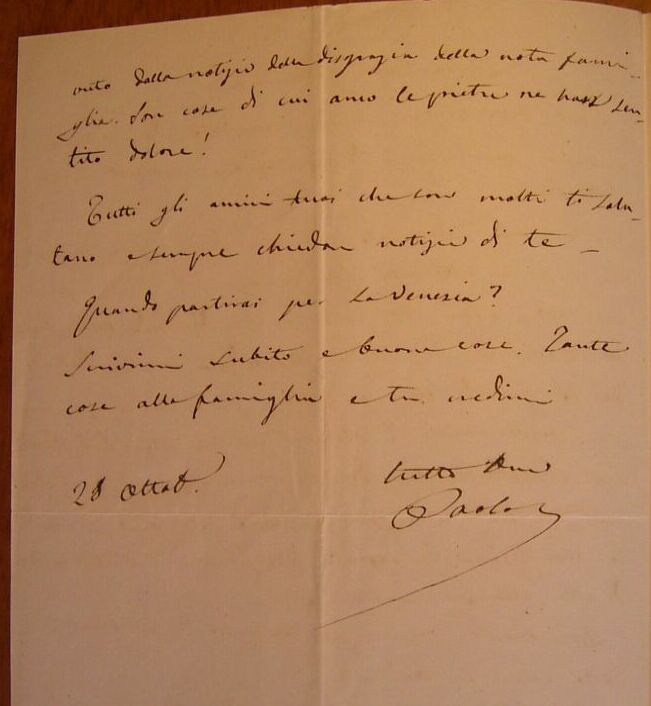 vuto dalla notizia della disgrazia della nota fami-
glia. Son cose di cui anco le pietre ne han sen-
tito dolore!
Tutti gli amici tuoi che son molti ti salu-
tano e sempre chiedon notizie di te _
Quando partirai per la Venezia?
Scrivimi subito e buone cose. Tante
cose alla famiglia e tu credimi
28 Ottob.
tutto tuo
Paolo